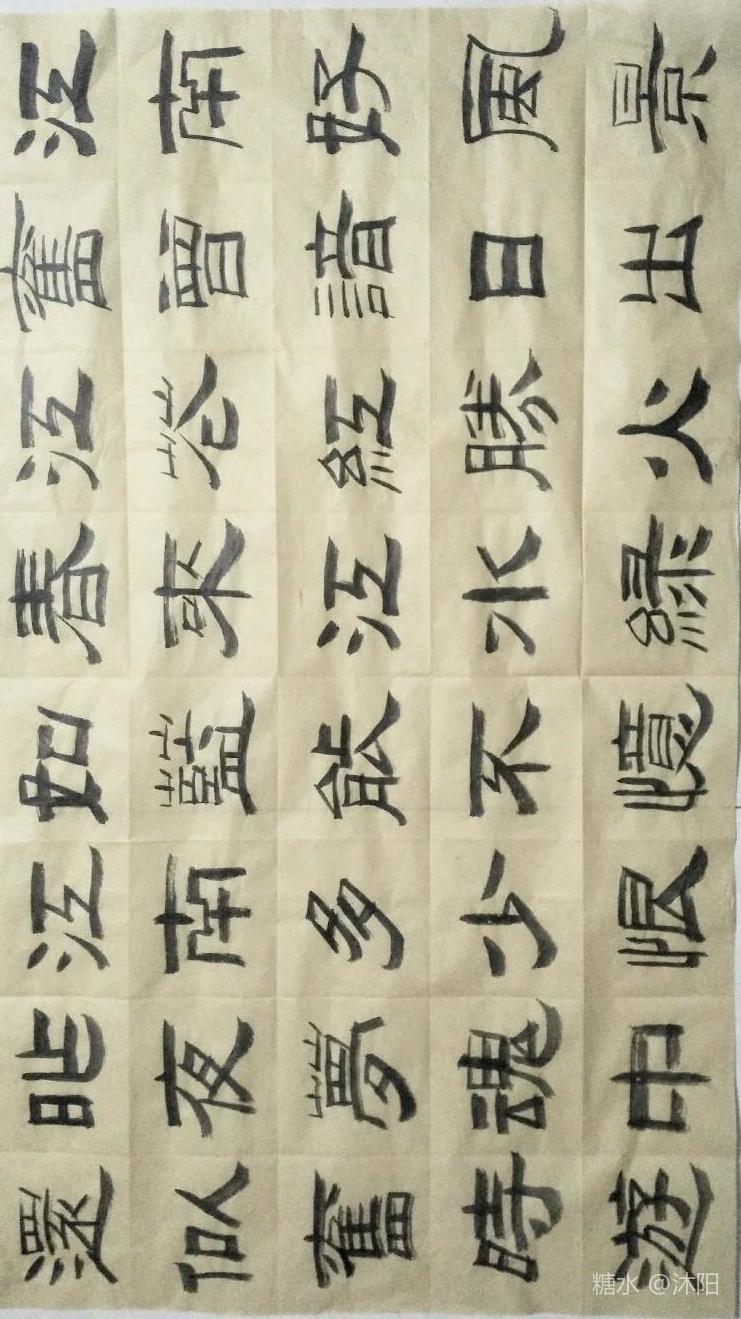 江南好風景
舊曾諳日出
江花紅勝火
春來江水綠
如藍能不憶
江南多少恨
昨夜夢魂中
還似舊時遊
糖水 @沐阳